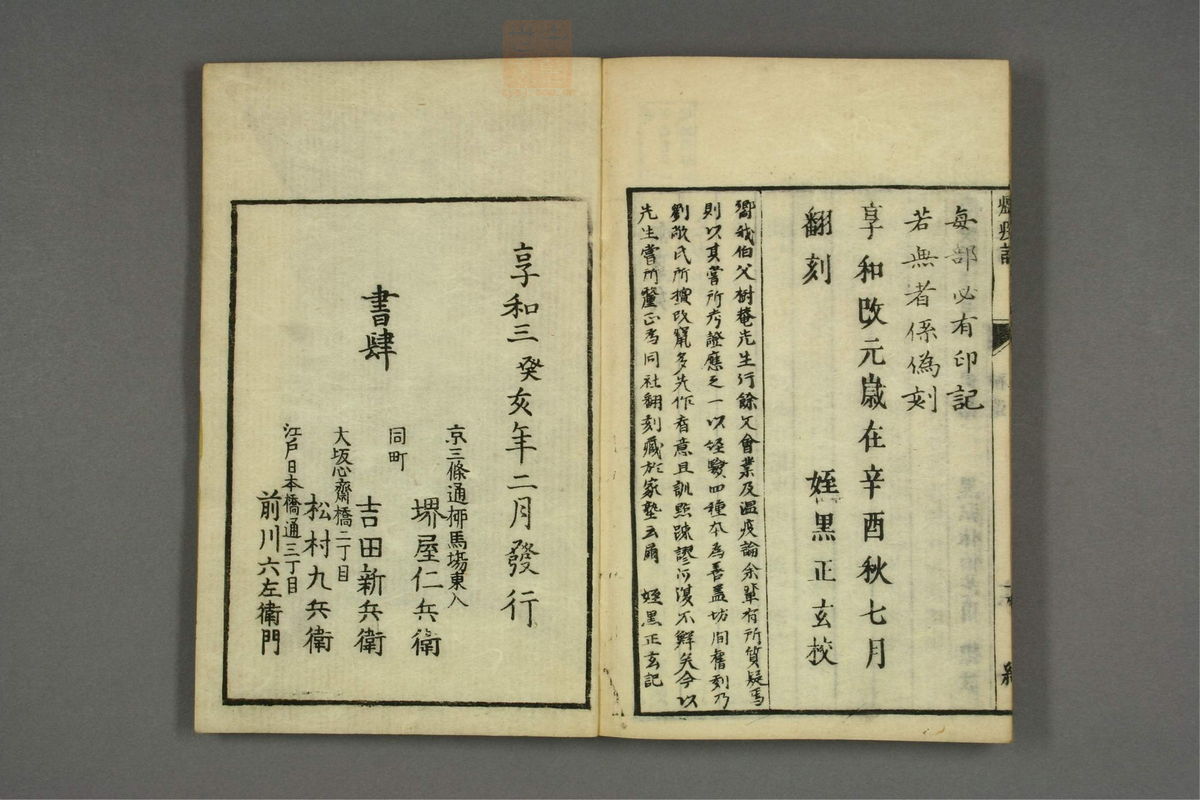 每部必有印記
若無者係偽刻
享和改元歲在辛酉秋七月
翻刻　姪黒正玄校
嚮我伯父樹菴先生行餘文會業及温疫論余輩有所質疑焉
則以其嘗所考證應之一以
四種本為善盖坊間舊刻乃
劉敞氏所
改竄多先作者意且訓點踈謬
不鮮矣今以
先生嘗所釐正為同社翻刻藏於家塾云爾　姪黒正玄記
享和三癸亥年二月發行
書肆
京三條通柳馬塲東入
堺屋仁兵衛
同町
吉田新兵衛
大坂心齋橋二丁目
松村九兵衛
江戸日本橋通三丁目
前川六左衛門